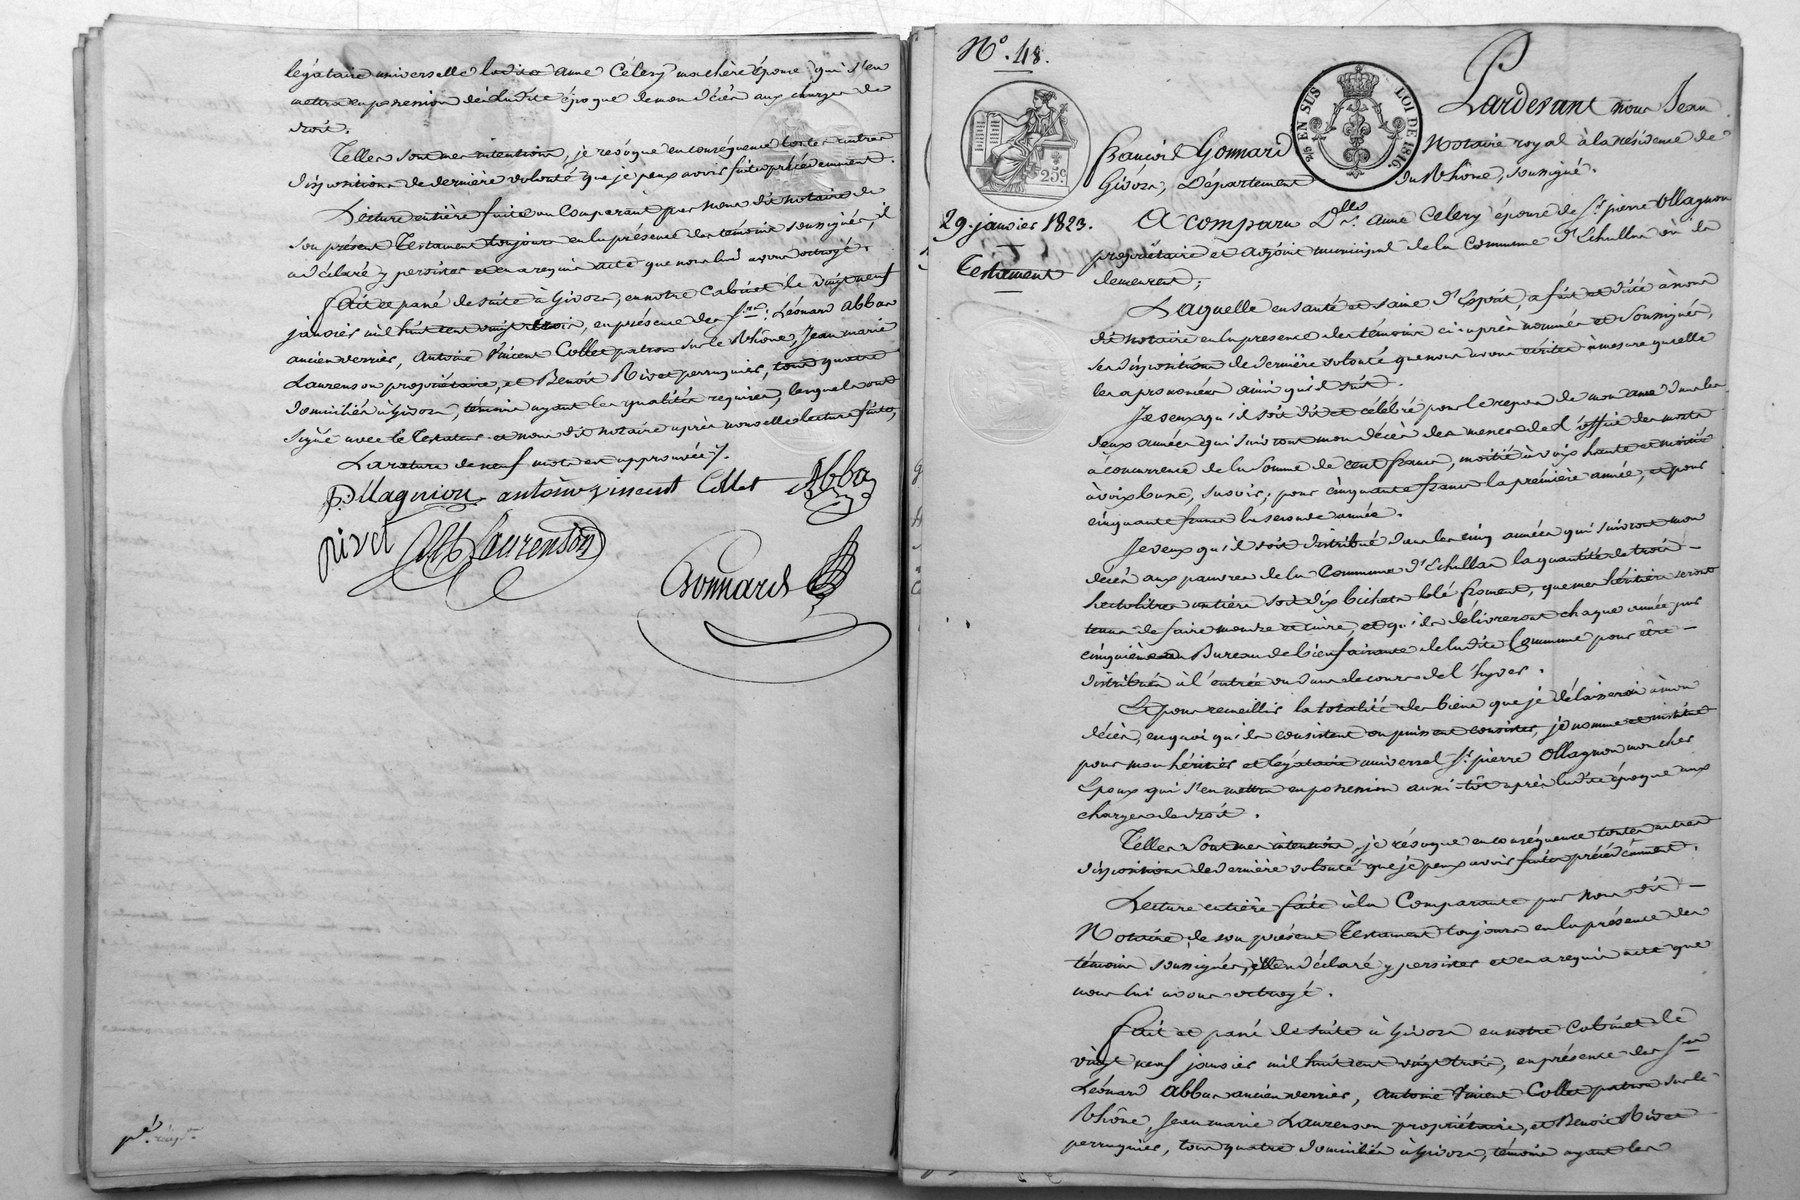 légataire universelle ladite anne Célery ma chère épouse qui s'en
mettra en possession dès ladite époque de mon décès aux charges de
droit.
Telles sont mes intentions, je révoque en conséquence toutes autres
dispositions de dernière volonté que je peux avoir faites précédemment.
Lecture entière faite au Comparant par Nous dit notaire de
son présent Testament toujours en la présence des témoins soussignés, il
a déclaré y persister et en a requis acte que nous lui avons octroyé.
fait et passé de suite à Givors, en notre Cabinet le vingt neuf
janvier mil huit cent vingt trois, en présence des Srs. Léonard Abbas
ancien verrier, Antoine Vincent Collet patron sur le Rhône, Jean marie
Laurenson propriétaire, et Benoit Rivet perruquier, tous quatre
domiciliés à Givors, témoins ayant les qualités requises, lesquels ont
signé avec le Testateur et nous dit notaire après nouvelle lecture faite,
La rature de neuf mots est approuvée.
P. Ollagnion antoine vincent Collet Abbas
Rivet JM Laurenson
Gonnard
N°. 48.
25c
EN SUS LOI DE 1816.
29. janvier 1823.
Testament
Pardevant nous Jean
francois Gonnard Notaire royal à la résidence de
Givors, Département du Rhône, soussigné.
A comparu Dlle. Anne Celery épouse de Sr. pierre Ollagnon
propriétaire et adjoint municipal de la Commune d'Echallas où ils
demeurent;
Laquelle en santé et saine d'Esprit, a fait et dicté à nous
dit notaire en la présence des témoins ci-après nommés et soussignés,
ses dispositions de dernière volonté que nous avons écrites à mesure qu'elle
les a prononcées ainsi qu'il suit.
Je veux qu'il soit dit et célébré pour le repos de mon ame dans les
deux années qui suivront mon décès des messes de l'office des morts
à concurrence de la somme de cent francs, moitié à voix haute et moitié
à voix basse, savoir, pour cinquante francs la première année, et pour
cinquante francs la seconde année.
Je veux qu'il soit distribué dans les cinq années qui suivront mon
décès aux pauvres de la Commune d'Echallas la quantité de trois
hectolitres entiers soit dix bichets blé froment, que mes héritiers seront
tenus de faire moudre et cuire, et qu'ils délivreront chaque année par
cinquième au Bureau de bienfaisance de ladite Commune pour être
distribués à l'entrée ou dans le cours de l'hyver.
Et pour recueillir la totalité des biens que je délaisserai à mon
décès, en quoi qu'ils consistent ou puissent consister, je nomme et institue
pour mon héritier et légataire universel Sr. pierre Ollagnon mon cher
Epoux qui s'en mettra en possession aussi-tôt après ladite époque aux
charges de droit.
Telles sont mes intentions, je révoque en conséquence toutes autres
dispositions de dernière volonté que je peux avoir faites précédemment.
Lecture entière faite à la Comparante par Nous dit
Notaire de son présent Testament toujours en la présence des
témoins soussignés, elle a déclaré y persister et en a requis acte que
nous lui avons octroyé.
fait et passé de suite à Givors en notre Cabinet le
vingt neuf janvier mil huit cent vingt trois, en présence des Srs
Léonard Abbas ancien verrier, Antoine Vincent Collet patron sur le
Rhône, Jean marie Laurenson propriétaire, et Benoit Rivet
perruquier, tous quatre domiciliés à Givors, témoins ayant les